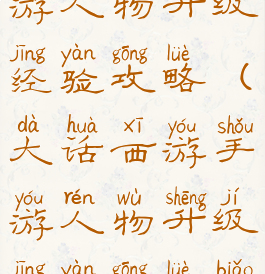 游人物升级
jīng yàn gōng lüè
经验攻略（
dà huà xī yóu shǒu
大话西游手
yóu rén wù shēng jí
游人物升级
jīng yàn gōng lüè biǎo